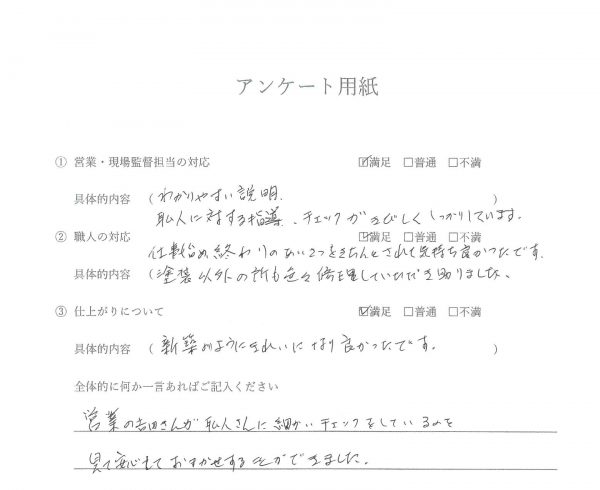 アンケート用紙
① 営業・現場監督担当の対応 ☑満足 □普通 □不満
具体的内容 (わかりやすい説明. )
職人に対する指導、チェックがきびしくしっかりしています.
② 職人の対応 ☑満足 □普通 □不満
仕事始め、終わりのあいさつをきちんとされて気持ち良かったです.
具体的内容 (塗装以外の所も色々修理していただき助りました。
③ 仕上がりについて ☑満足 □普通 □不満
具体的内容 (新築のようにきれいになり良かったです. )
全体的に何か一言あればご記入ください
営業の吉田さんが職人さんに細かいチェックをしているのを
見て安心しておまかせする事ができました.